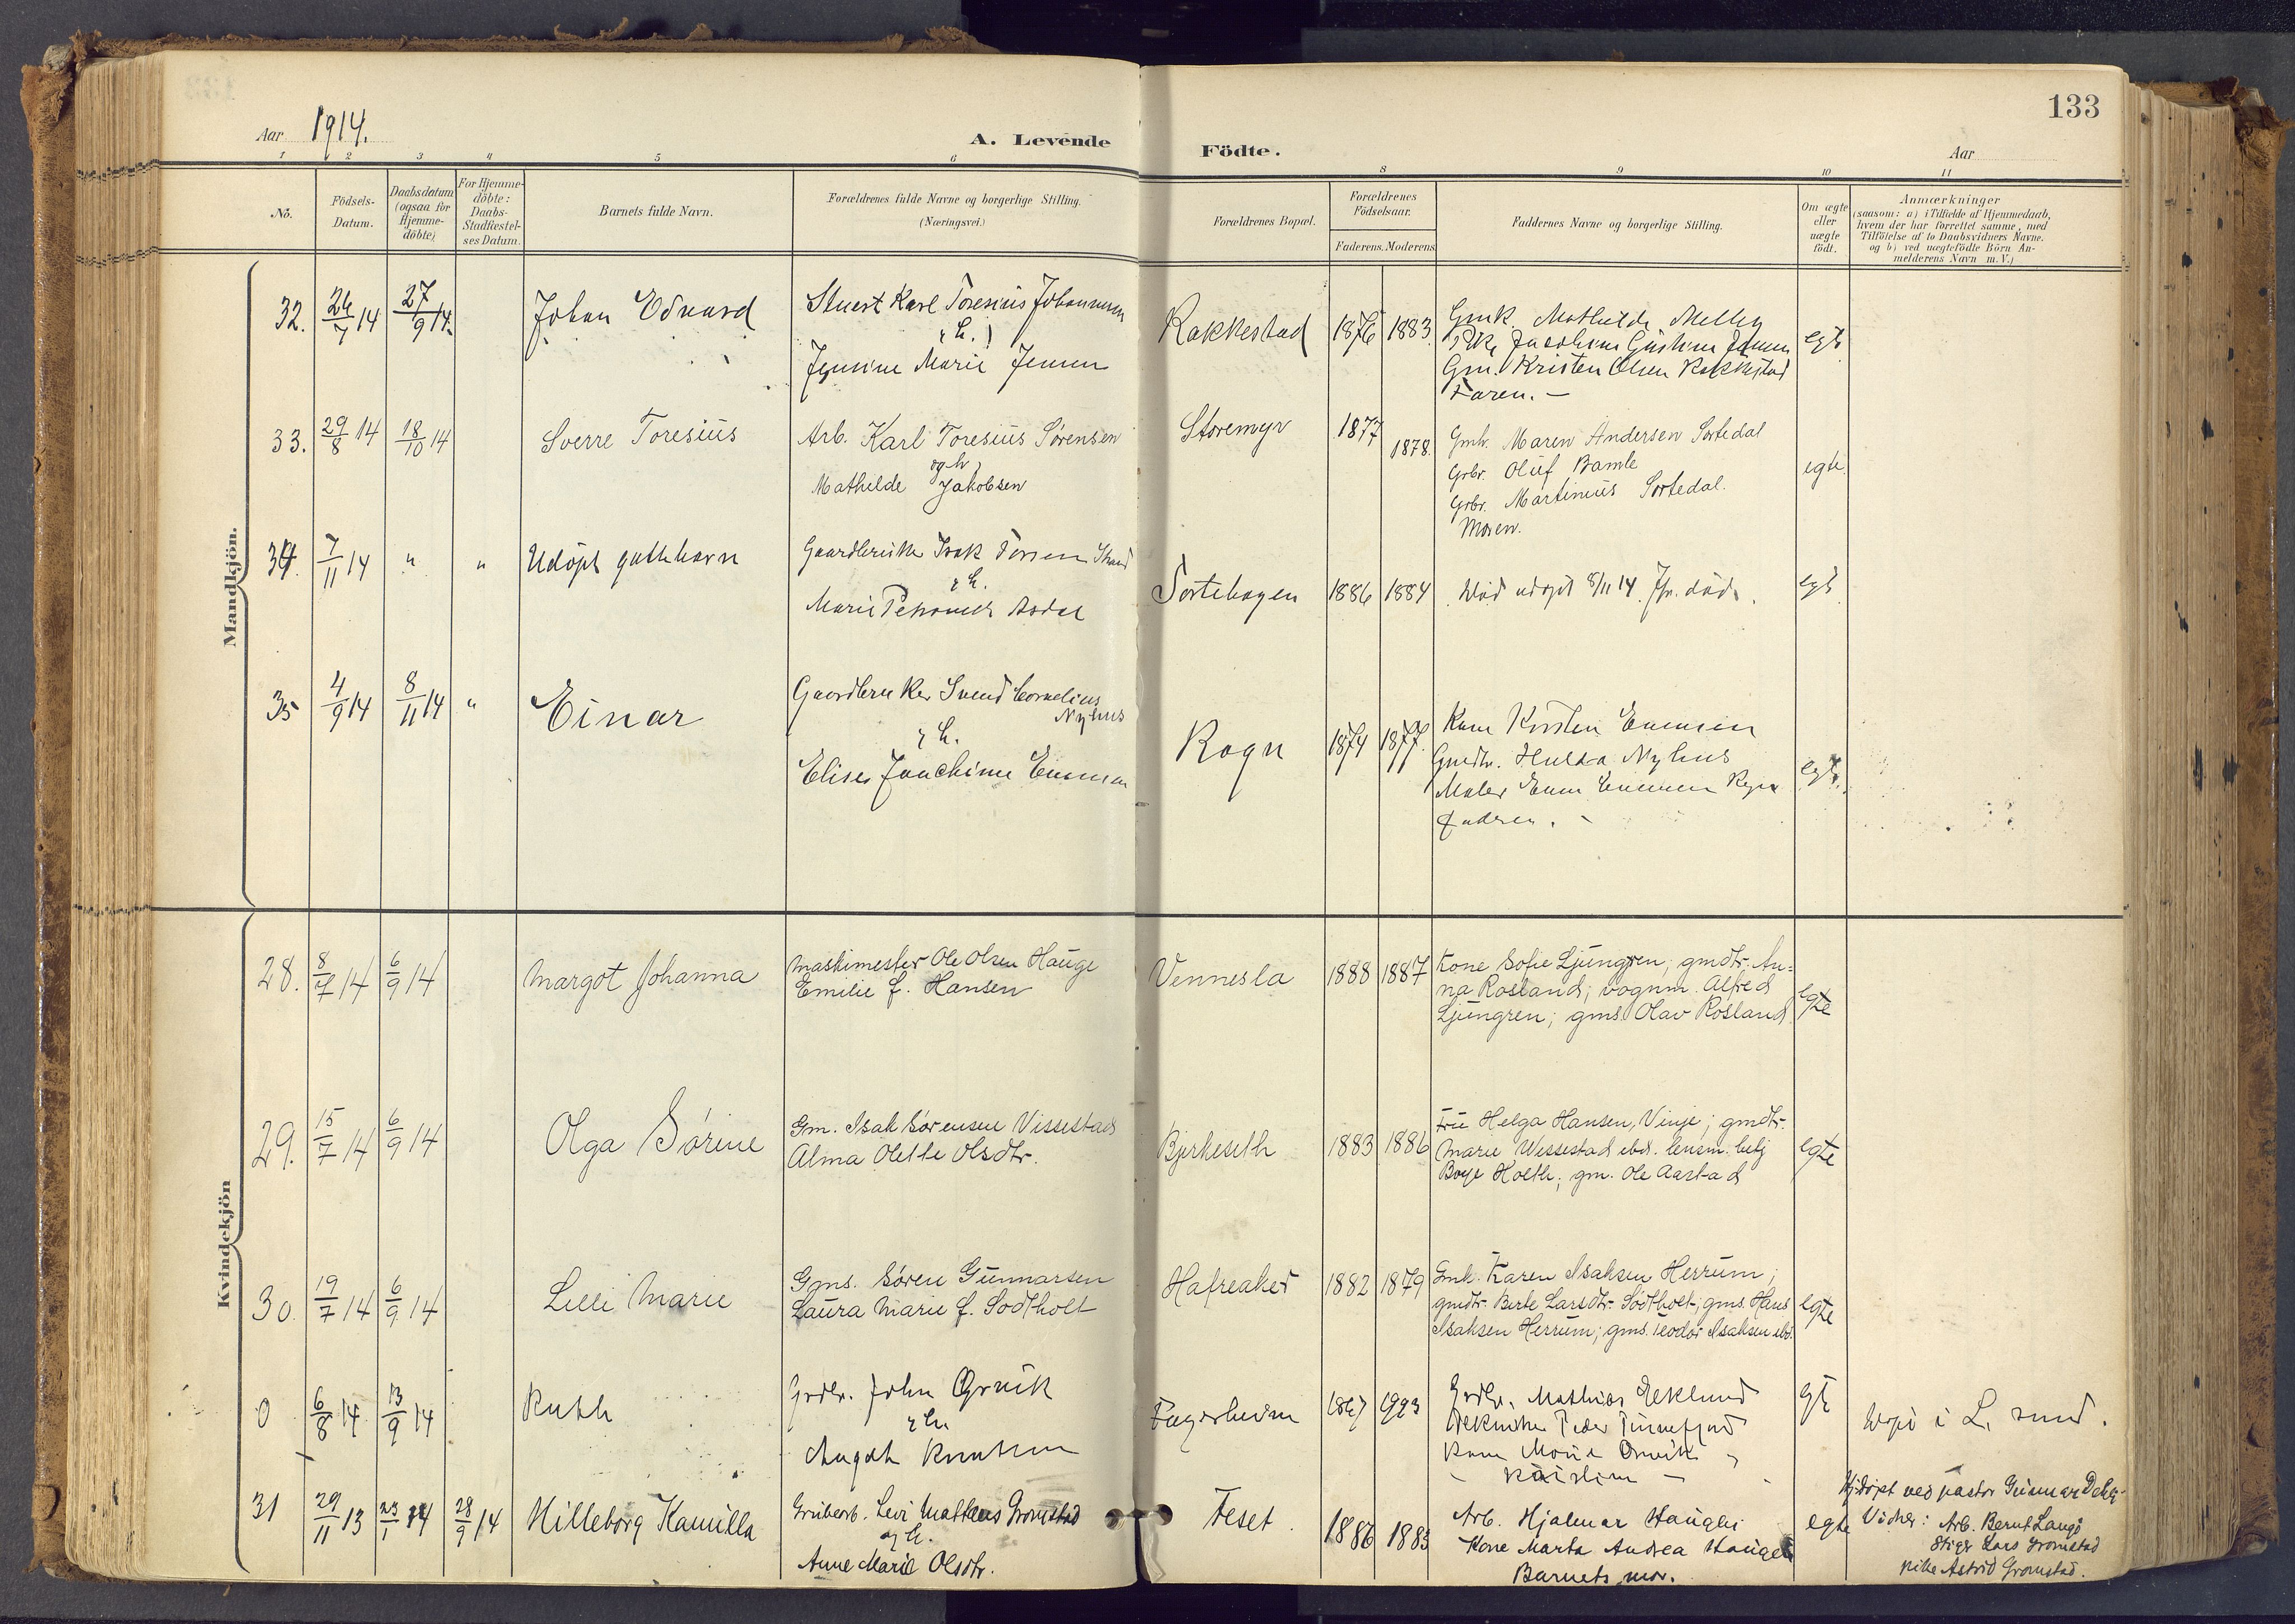 133
Aar 1914.
A. Levende
Födte.
Aar
1 2 3 4 5 6 8 9 10 11
No.
Födsels-
Datum.
Daabsdatum
(ogsaa for
Hjemme-
döbte)
For Hjemme-
döbte:
Daabs-
Stadfæstel-
ses Datum.
Barnets fulde Navn.
Forældrenes fulde Navne og borgerlige Stilling.
(Næringsvei.)
Forældrenes Bopæl.
Forældrenes
Födselsaar.
Faderens. Moderens
Faddernes Navne og borgerlige Stilling.
Om ægte
eller
uægte
födt.
Anmærkninger
(saasom: a) i Tilfælde af Hjemmedaab,
hvem der har forrettet samme, med
Tilföielse af to Daabsvidners Navne.
og b) ved uægtefödte Börn An-
melderens Navn m. V.)
Mandkjön.
32. 26/7 14 27/9 14. Johan Edvard
Stuert Karl Toresius Johannesen
& h.
Jensine Marie Jensen
Rakkestad 1876 1883.
Gmk. Mathilde Melby
Pike Jacobine Gustava Jensen
Gm. Kristen Olsen Rakkestad
Faren. —
egt.
33. 29/8 14 18/10 14 Sverre Toresius
Arb. Karl Toresius Sørensen
og h.
Mathilde Jakobsen
Storemyr 1877 1878.
Gmk. Maren Andersen Sortedal
Grbr. Oluf Bamle
Grbr. Martinius Sortedal.
Moren.
egte.
34. 7/11 14 " " Udöpt guttebarn
Gaardbruker Isak
& h.
Marie
Sortehagen 1886 1884 Död udöpt 8/11 14.
egt
35 4/9 14 8/11 14 " Einar
Gaardbruker Svend Cornelius
Nyhus
& h.
Elise Joachime
Rogn 1874 1877.
Kone Kirsten
Gmdtr. Hulda Nyhus
Maler
Fadren. -
egt.
Kvindekjön
28. 8/7 14 6/9 14 Margot Johanna
Maskimester Ole Olsen Hauge
Emilie f. Hansen
Vennesla 1888 1887
Kone Sofie Ljungren; gmdtr. An-
na Rosland; vognm. Alfred
Ljungren; gms. Olav Rosland
egte
29. 15/7 14 6/9 14 Olga Sørine
Gm. Isak Sørensen Vissestad
Alma Olette Olsdtr.
Bjerkeseth 1883 1886
Fru Helga Hansen, Vinje; gmdtr.
Marie Wissestad ibd. lensm. betj
Boye Holtte; gm. Ole Aastad
egte
30. 19/7 14 6/9 14 Lilli Marie
Gms. Søren Gunnarsen
Laura Marie f. Sodtholt
Hafreaker 1882 1879
Gmk. Karen Isaksen Herrum;
gmdtr. Berte Larsdtr. Sodtholt; gms. Hans
Isaksen Herrum; gms. Teodor Isaksen ibd.
egte
0 6/8 14 13/9 14 Ruth
Grdbr. John Ørvik
& h.
Knutsen
Fagerheim
Grdbr. Mathias Eklund
Kone
egt
Döpt i L. sund.
31 29/11 13 23/1 14 28/9 14 Hilleborg Kamilla
Grubearb. Levi Matheus Gromstad
og h.
Anne Marie Olsdtr.
Feset. 1886 1885
Arb. Hjalmar Haugen
Kone Marta Andrea Haugen
Barnets mor.
egte
Hj.döpt ved pastor Gunnar Dehli.
Vidner: Arb. Bernt Langö
Stiger Lars Gromstad
Pike Astrid Gromstad.